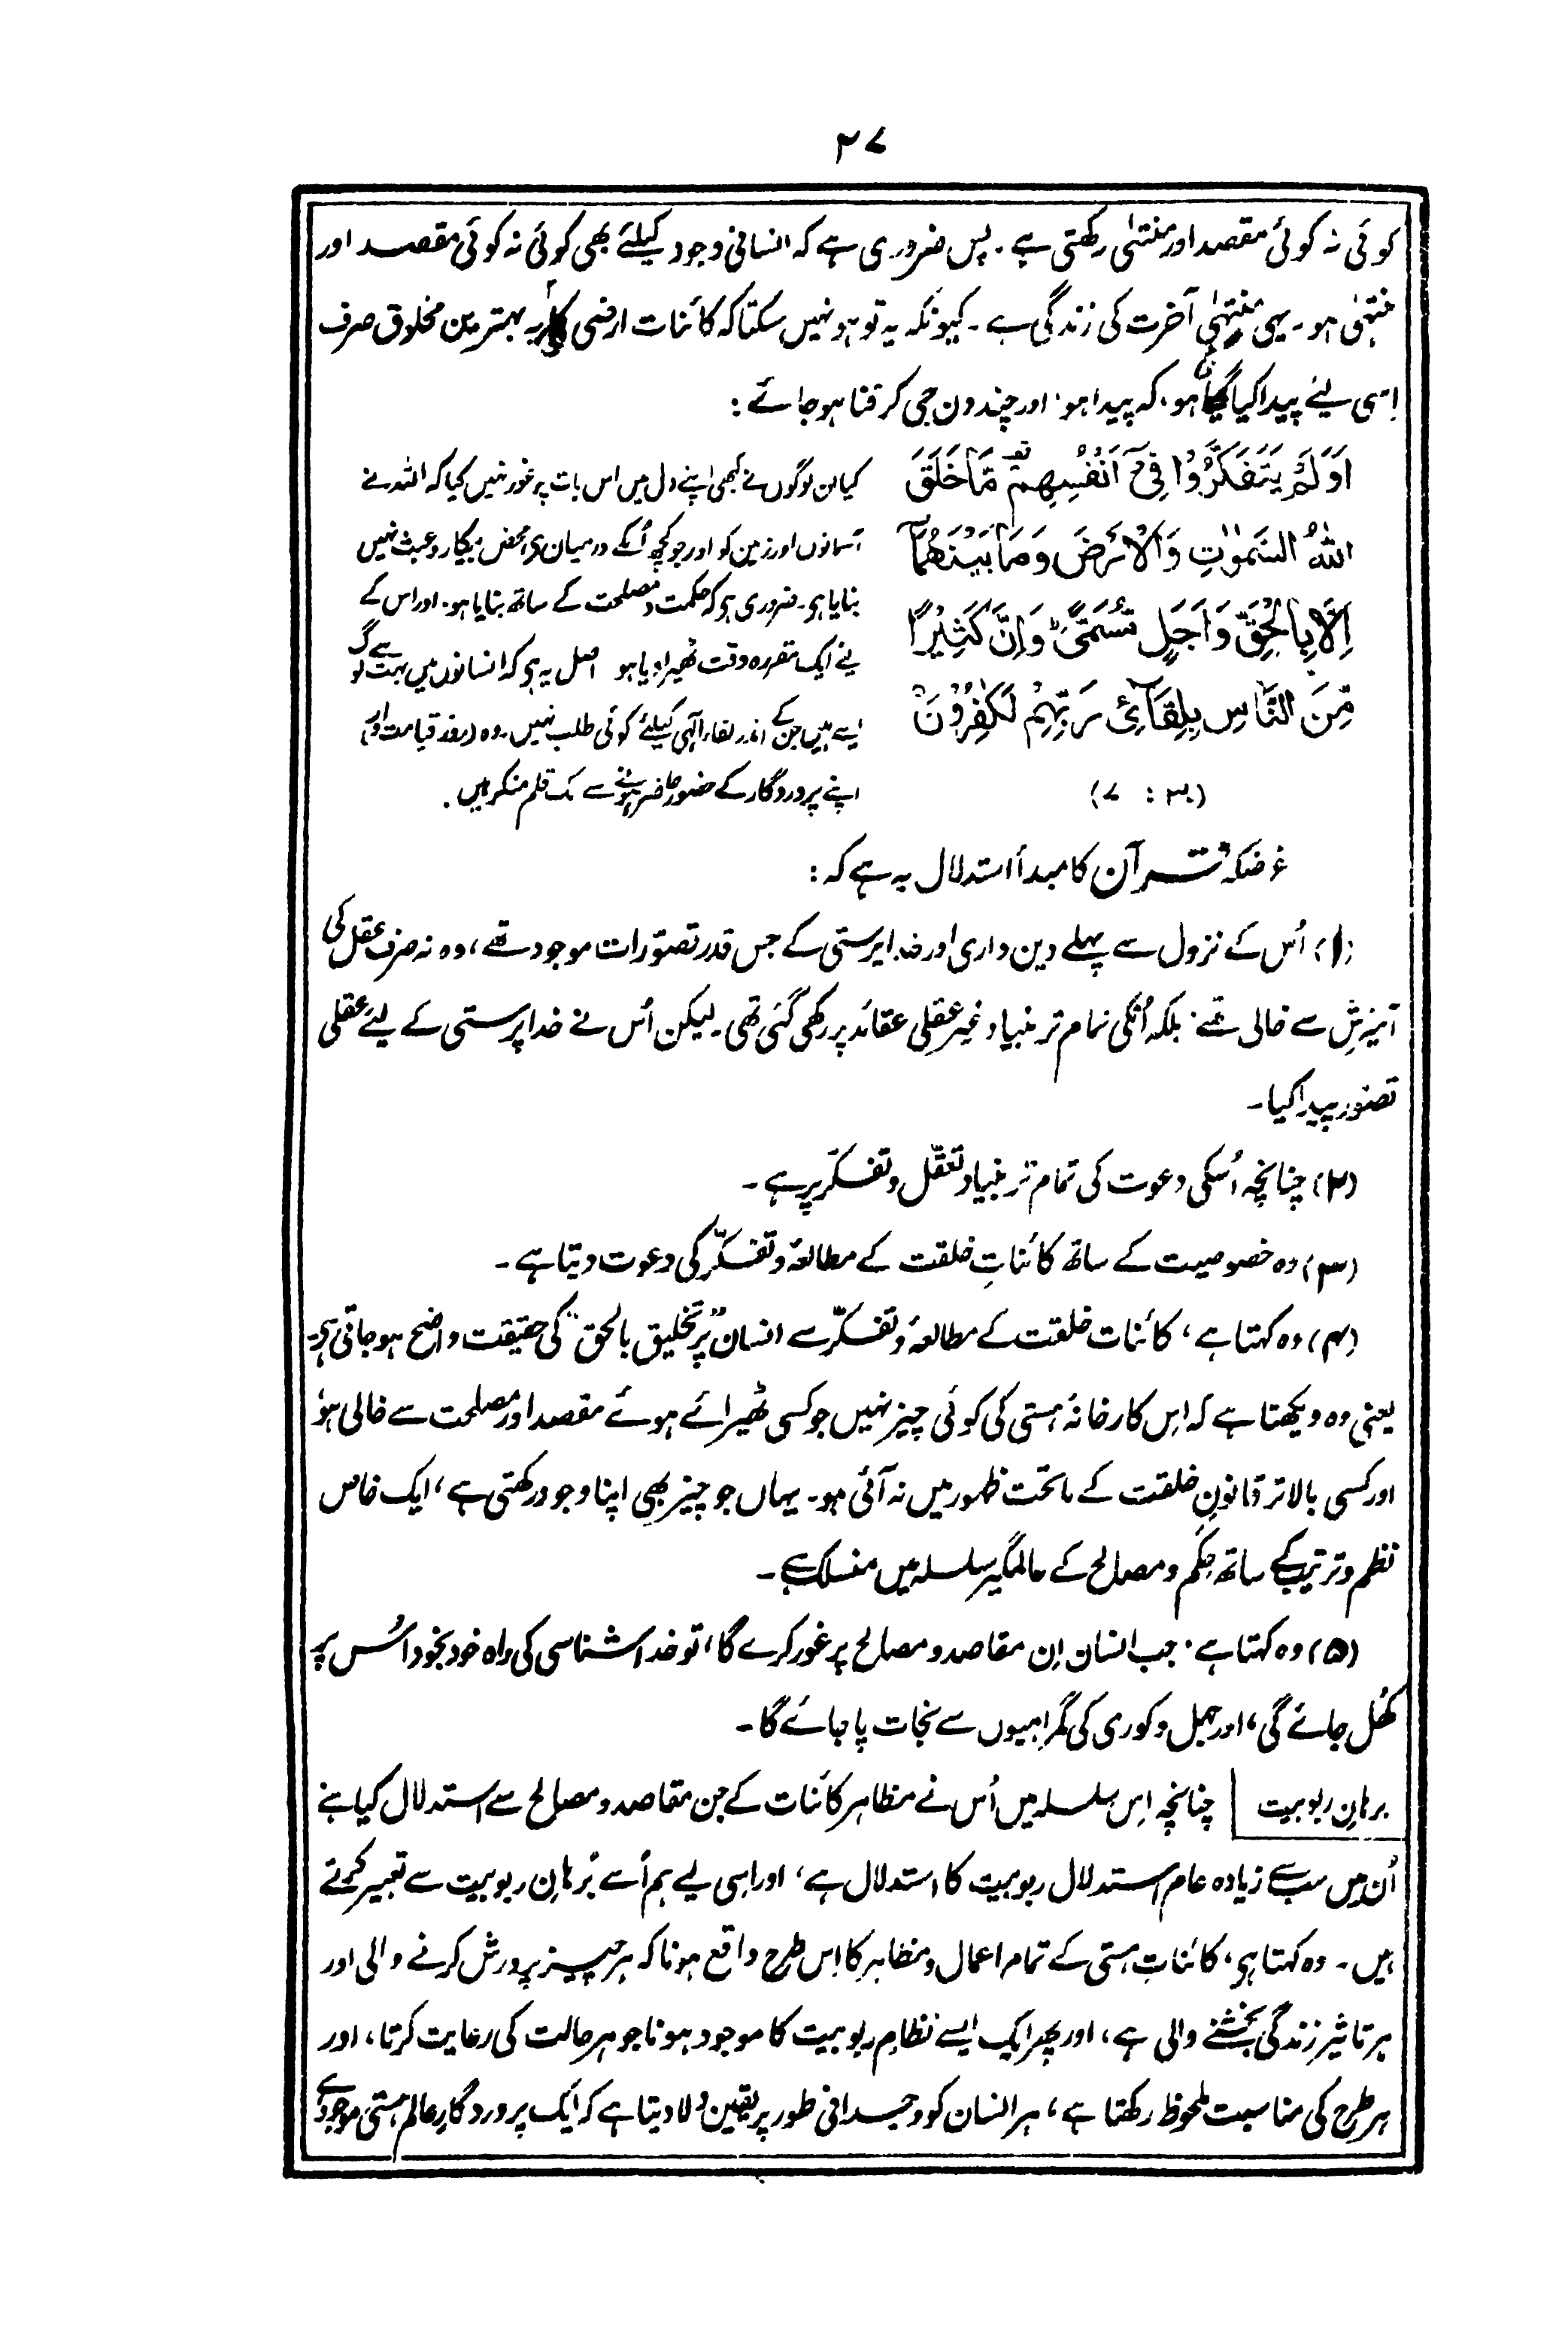 ۲۷
کوئی نہ کوئی مقصد اور منتہٰی رکھتی ہے ۔ پس ضروری ہے کہ انسانی وجود کیلئے بھی کوئی نہ کوئی مقصد اور
منتہٰی ہو ۔ یہی منتہٰی آخرت کی زندگی ہے ۔ کیونکہ یہ تو ہو نہیں سکتا کہ کائنات ارضی کی یہ بہترین مخلوق صرف
اِسی لیئے پیدا کی گئی ہو ، کہ پیدا ہو ، اور چند دن جی کر فنا ہو جائے :
اَوَلَمْ یَتَفَکَّرُوْا فِیْٓ اَنْفُسِهِمْ مَّا خَلَقَ
اللّٰهُ السَّمٰوٰتِ وَالْاَرْضَ وَمَا بَیْنَهُمَآ
اِلَّا بِالْحَقِّ وَاَجَلٍ مُّسَمًّی ؕ وَاِنَّ کَثِیْرًا
مِّنَ النَّاسِ بِلِقَآئِ رَبِّهِمْ لَکٰفِرُوْنَ
(۳۰ : ۷)
کیا ان لوگوں نے کبھی اپنے دل میں اس بات پر غور نہیں کیا کہ اللہ نے
آسمانوں اور زمین کو اور جو کچھ اُنکے درمیان ہی محض بیکار و عبث نہیں
بنایا ہی ۔ ضروری ہی کہ حکمت و مصلحت کے ساتھ بنایا ہو ، اور اس کے
لیے ایک مقررہ وقت ٹھیرا دیا ہو اصل یہ ہی کہ انسانوں میں بہت سے لوگ
ایسے ہیں جن کے اندر لقاء الٰہی کیلئے کوئی طلب نہیں ۔ وہ (روز قیامت اور)
اپنے پروردگار کے حضور حاضر ہونے سے یک قلم منکر ہیں ۔
غرضکہ قرآن کا مبدأ استدلال یہ ہے کہ :
(۱) اُس کے نزول سے پہلے دین داری اور خدا پرستی کے جس قدر تصوّرات موجود تھے ، وہ نہ صرف عقل کی
آمیزش سے خالی تھے ، بلکہ اُنکی تمام تر بنیاد غیر عقلی عقائد پر رکھی گئی تھی ۔ لیکن اُس نے خدا پرستی کے لیئے عقلی
تصور پیدا کیا ۔
(۲) چنانچہ اُسکی دعوت کی تمام تر بنیاد تعقّل و تفکّر پر ہے ۔
(۳) وہ خصوصیت کے ساتھ کائناتِ خلقت کے مطالعہ و تفکّر کی دعوت دیتا ہے ۔
(۴) وہ کہتا ہے ، کائنات خلقت کے مطالعہ و تفکّر سے انسان پر "تخلیق بالحق" کی حقیقت واضح ہو جاتی ہی ۔
یعنی وہ دیکھتا ہے کہ اِس کارخانۂ ہستی کی کوئی چیز نہیں جو کسی ٹھیرائے ہوئے مقصد اور مصلحت سے خالی ہو ،
اور کسی بالاتر قانونِ خلقت کے ماتحت ظہور میں نہ آئی ہو ۔ یہاں جو چیز بھی اپنا وجود رکھتی ہے ، ایک خاص
نظم و ترتیب کے ساتھ حِکَم و مصالح کے عالمگیر سلسلہ میں منسلک ہے ۔
(۵) وہ کہتا ہے ، جب انسان اِن مقاصد و مصالح پر غور کرے گا ، تو خدا شناسی کی راہ خود بخود اُس پر
کُھل جائے گی ، اور جہل و کوری کی گمراہیوں سے نجات پا جائے گا ۔
برہانِ ربوبیت چنانچہ اِس سلسلہ میں اُس نے مظاہر کائنات کے جن مقاصد و مصالح سے استدلال کیا ہے
اُن میں سب سے زیادہ عام استدلال ربوبیت کا استدلال ہے ، اور اِسی لیے ہم اُسے بُرہانِ ربوبیت سے تعبیر کرتے
ہیں ۔ وہ کہتا ہی ، کائناتِ ہستی کے تمام اعمال و مظاہر کا اِس طرح واقع ہونا کہ ہر چیز پرورش کرنے والی اور
ہر تاثیر زندگی بخشنے والی ہے ، اور پھر ایک ایسے نظامِ ربوبیت کا موجود ہونا جو ہر حالت کی رعایت کرتا ، اور
ہر طرح کی مناسبت ملحوظ رکھتا ہے ، ہر انسان کو وجدانی طور پر یقین دلا دیتا ہے کہ ایک پروردگارِ عالم ہستی موجود ہے